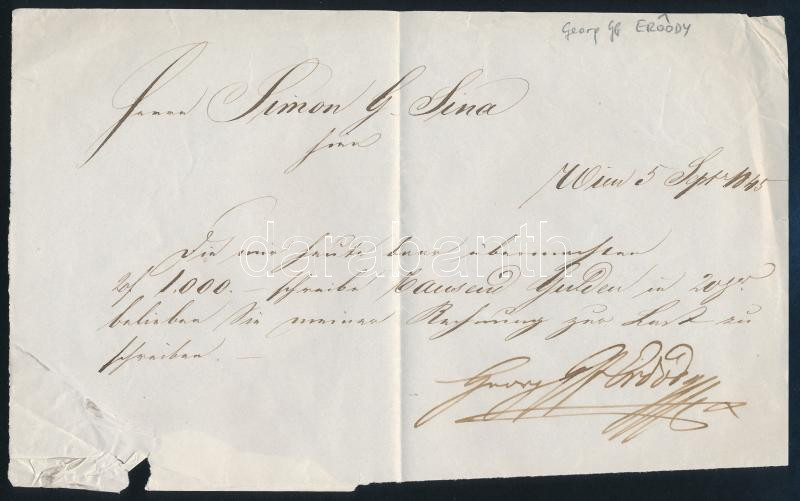 Georg Gf ERDŐDY
Herrn Simon G. Sina
hier
Wien 5 Sept 1845
Die mir heute baar übermachten
1,000.– schreibe Tausend Gulden in 20ger
belieben Sie meiner Rechnung zur Last zu
schreiben. –
Georg Gf Erdődy
darabanth